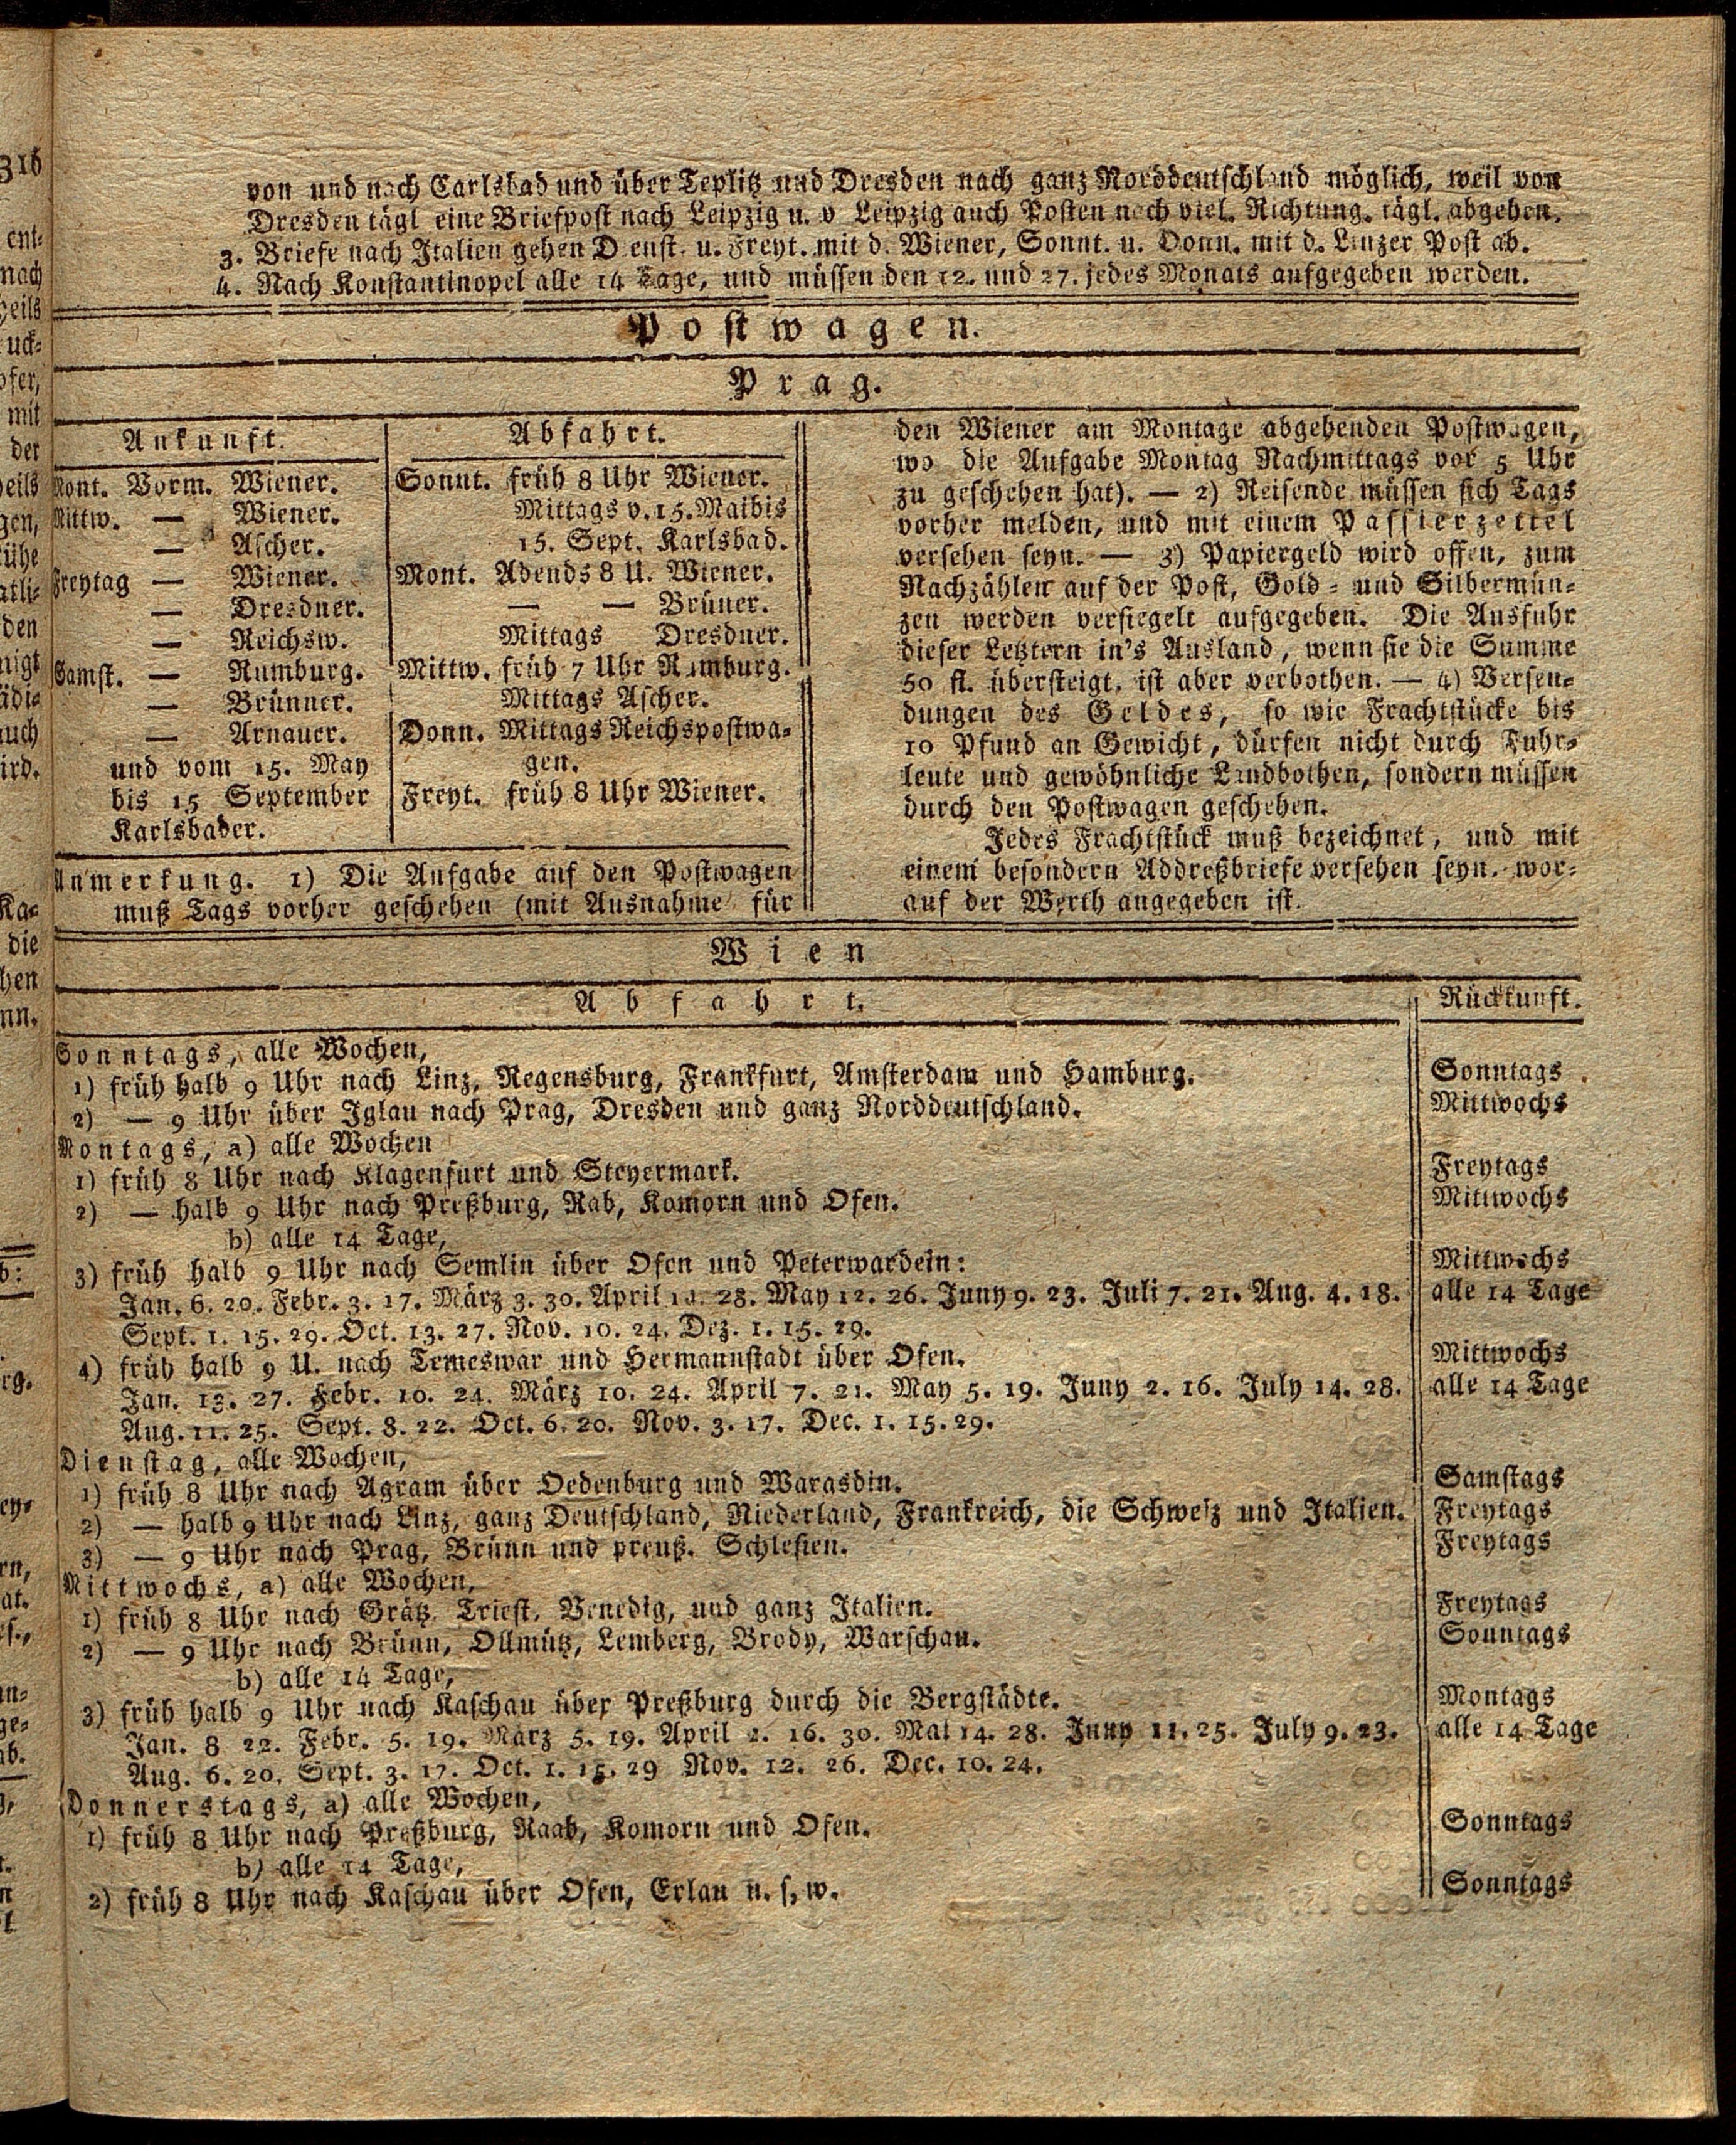 von und nach Carlsbad und über Teplitz und Dresden nach ganz Norddeutschland möglich, weil von
Dresden tägl eine Briefpost nach Leipzig u. v Leipzig auch Posten nach viel. Richtung. tägl. abgehen.
3. Briefe nach Italien gehen D enst. u. Freyt. mit d. Wiener, Sonnt. u. Donn. mit d. Linzer Post ab.
4. Nach Konstantinopel alle 14 Tage, und müssen den 12. und 27. jedes Monats aufgegeben werden.
Postwagen.
Prag.
Ankunft.
Mont. Vorm. Wiener.
Mittw. — Wiener.
— Ascher.
Freytag — Wiener.
— Dresdner.
— Reichsw.
Samst. — Rumburg.
— Brünner.
— Arnauer.
und vom 15. May
bis 15 September
Karlsbader.
Abfahrt.
Sonnt. früh 8 Uhr Wiener.
Mittags v. 15. Mai bis
15. Sept. Karlsbad.
Mont. Abends 8 U. Wiener.
— — Brüner.
Mittags Dresdner.
Mittw. früh 7 Uhr Rumburg.
Mittags Ascher.
Donn. Mittags Reichspostwa-
gen.
Freyt. früh 8 Uhr Wiener.
Anmerkung. 1) Die Aufgabe auf den Postwagen
muß Tags vorher geschehen (mit Ausnahme für
den Wiener am Montage abgehenden Postwagen,
wo die Aufgabe Montag Nachmittags vor 5 Uhr
zu geschehen hat). — 2) Reisende müssen sich Tags
vorher melden, und mit einem Passierzettel
versehen seyn. — 3) Papiergeld wird offen, zum
Nachzählen auf der Post, Gold- und Silbermün-
zen werden versiegelt aufgegeben. Die Ausfuhr
dieser Letztern in's Ausland, wenn sie die Summe
50 fl. übersteigt, ist aber verbothen. — 4) Versen-
dungen des Geldes, so wie Frachtstücke bis
10 Pfund an Gewicht, dürfen nicht durch Fuhr-
leute und gewöhnliche Landbothen, sondern müssen
durch den Postwagen geschehen.
Jedes Frachtstück muß bezeichnet, und mit
einem besondern Addreßbriefe versehen seyn. wor-
auf der Werth angegeben ist.
Wien
Abfahrt. Rückkunft.
Sonntags, alle Wochen,
1) früh halb 9 Uhr nach Linz, Regensburg, Frankfurt, Amsterdam und Hamburg. Sonntags
2) — 9 Uhr über Iglau nach Prag, Dresden und ganz Norddeutschland. Mittwochs
Montags, a) alle Wochen
1) früh 8 Uhr nach Klagenfurt und Steyermark. Freytags
2) — halb 9 Uhr nach Preßburg, Rab, Komorn und Ofen. Mittwochs
b) alle 14 Tage,
3) früh halb 9 Uhr nach Semlin über Ofen und Peterwardein: Mittwochs
Jan. 6. 20. Febr. 3. 17. März 3. 30. April 28. May 12. 26. Juny 9. 23. Juli 7. 21. Aug. 4. 18. alle 14 Tage
Sept. 1. 15. 29. Oct. 13. 27. Nov. 10. 24. Dez. 1. 15. 29.
4) früh halb 9 U. nach Temeswar und Hermannstadt über Ofen. Mittwochs
Jan. 13. 27. Febr. 10. 24. März 10. 24. April 7. 21. May 5. 19. Juny 2. 16. July 14. 28. alle 14 Tage
Aug. 11. 25. Sept. 8. 22. Oct. 6. 20. Nov. 3. 17. Dec. 1. 15. 29.
Dienstag, alle Wochen,
1) früh 8 Uhr nach Agram über Oedenburg und Warasdin. Samstags
2) — halb 9 Uhr nach Linz, ganz Deutschland, Niederland, Frankreich, die Schweiz und Italien. Freytags
3) — 9 Uhr nach Prag, Brünn und preuß. Schlesien. Freytags
Mittwochs, a) alle Wochen,
1) früh 8 Uhr nach Grätz, Triest, Venedig, und ganz Italien. Freytags
2) — 9 Uhr nach Brünn, Ollmütz, Lemberg, Brody, Warschau. Sonntags
b) alle 14 Tage,
3) früh halb 9 Uhr nach Kaschau über Preßburg durch die Bergstädte. Montags
Jan. 8 22. Febr. 5. 19. März 5. 19. April 2. 16. 30. Mai 14. 28. Juny 11. 25. July 9. 23. alle 14 Tage
Aug. 6. 20. Sept. 3. 17. Oct. 1. 15. 29 Nov. 12. 26. Dec. 10. 24.
Donnerstags, a) alle Wochen,
1) früh 8 Uhr nach Preßburg, Raab, Komorn und Ofen. Sonntags
b) alle 14 Tage,
2) früh 8 Uhr nach Kaschau über Ofen, Erlau u. s. w. Sonntags